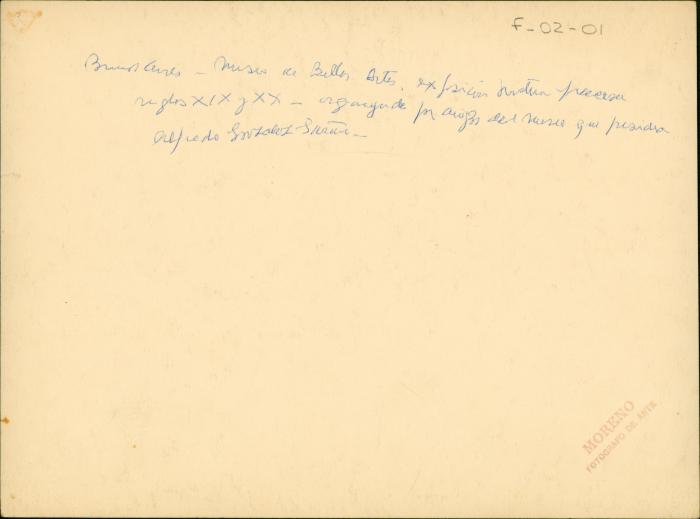 F-02-01
Buenos Aires - Museo de Bellas Artes, exposición pintura francesa
siglos XIX y XX - organizada por amigos del Museo que presidia
Alfredo González Garaño -
MORENO
FOTOGRAFO DE ARTE